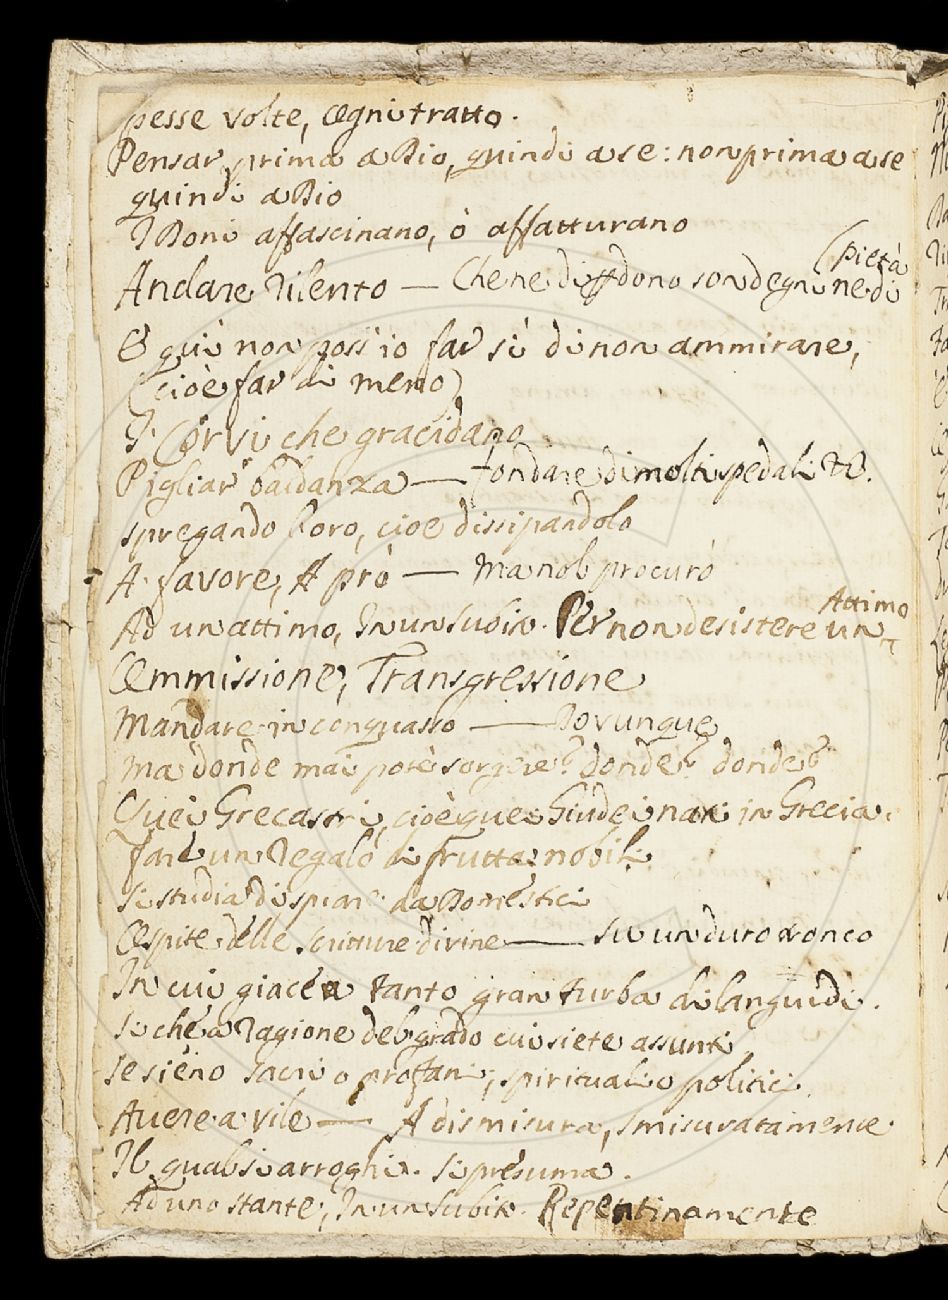 spesse volte, Ogni tratto.
Pensar prima a Dio, quindi a se: non prima a se
quindi a Dio
I Boni affascinano, ò affatturano
(pietà
Andare rilento — Che ne diffidono son degni ne di
E quì non poss'io far sì di non ammirare,
(cioè far di meno)
I Corvi che gracidano
Pigliar baldanza — fondare di molti spedali &c.
spregando loro, cioè dissipandolo
A favore, A prò — Ma nol procurò
Attimo
Ad un attimo, In un subito. Per non desistere un
Ommissione, Transgressione
Mandare in conquasso — Dovunque
Ma donde mai potè sorgere? donde? donde?
Quei Grecastri, cioè quei Giudei nati in Grecia.
fare un regalo di frutta nobili
Si studia di spiare da Domestici
Ospite delle scritture divine — su un duro tronco
In cui giacea tanto gran turba di languidi.
Si che a ragione del grado cui siete assunti
Se sieno sacri o profani, spirituali o politici
Avere a vile — A dismisura, smisuratamente
Il qual si arroghi. si presuma.
Ad uno stante, In un subito. Repentinamente